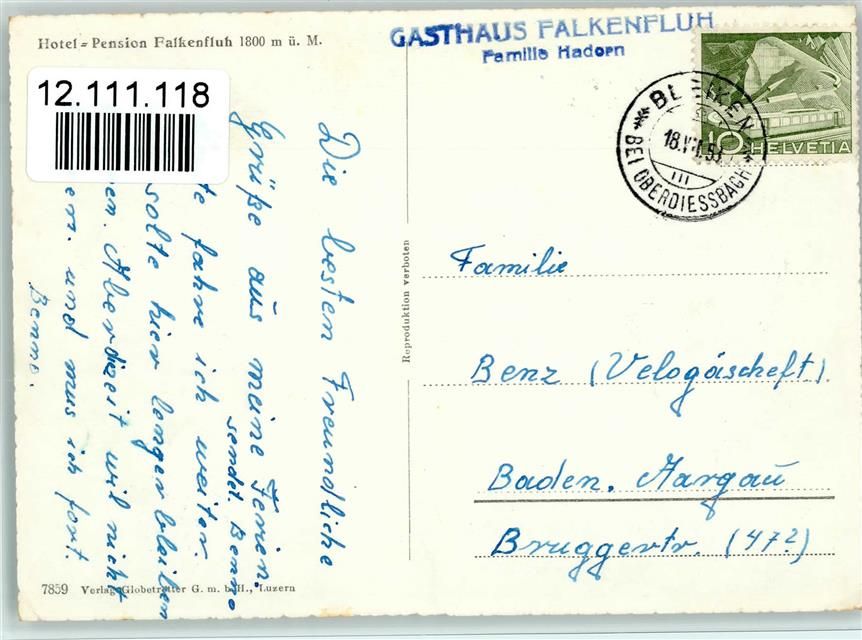 Hotel-Pension Falkenfluh 1800 m ü. M.
GASTHAUS FALKENFLUH
Familie Hadorn
12.111.118
BLEIKEN
18.VII.53
III
BEI OBERDIESSBACH
10 HELVETIA
Die besten Freundliche
Grüße aus meine Ferien.
sendet Benno
te fahre ich weiter.
solte hier langer bleiben
en. Aber dizeit wil nicht
ern. und mus ich fort.
Benno.
Reproduktion verboten
Familie
Benz (Velogäscheft)
Baden. Aargau
Bruggertr. (47?)
7859 Verlag Globetrotter G. m. b. H., Luzern